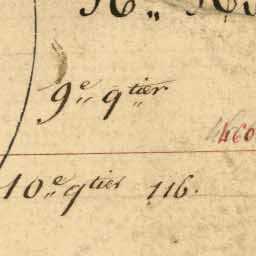 9e qtier
460
10e qtier 116.